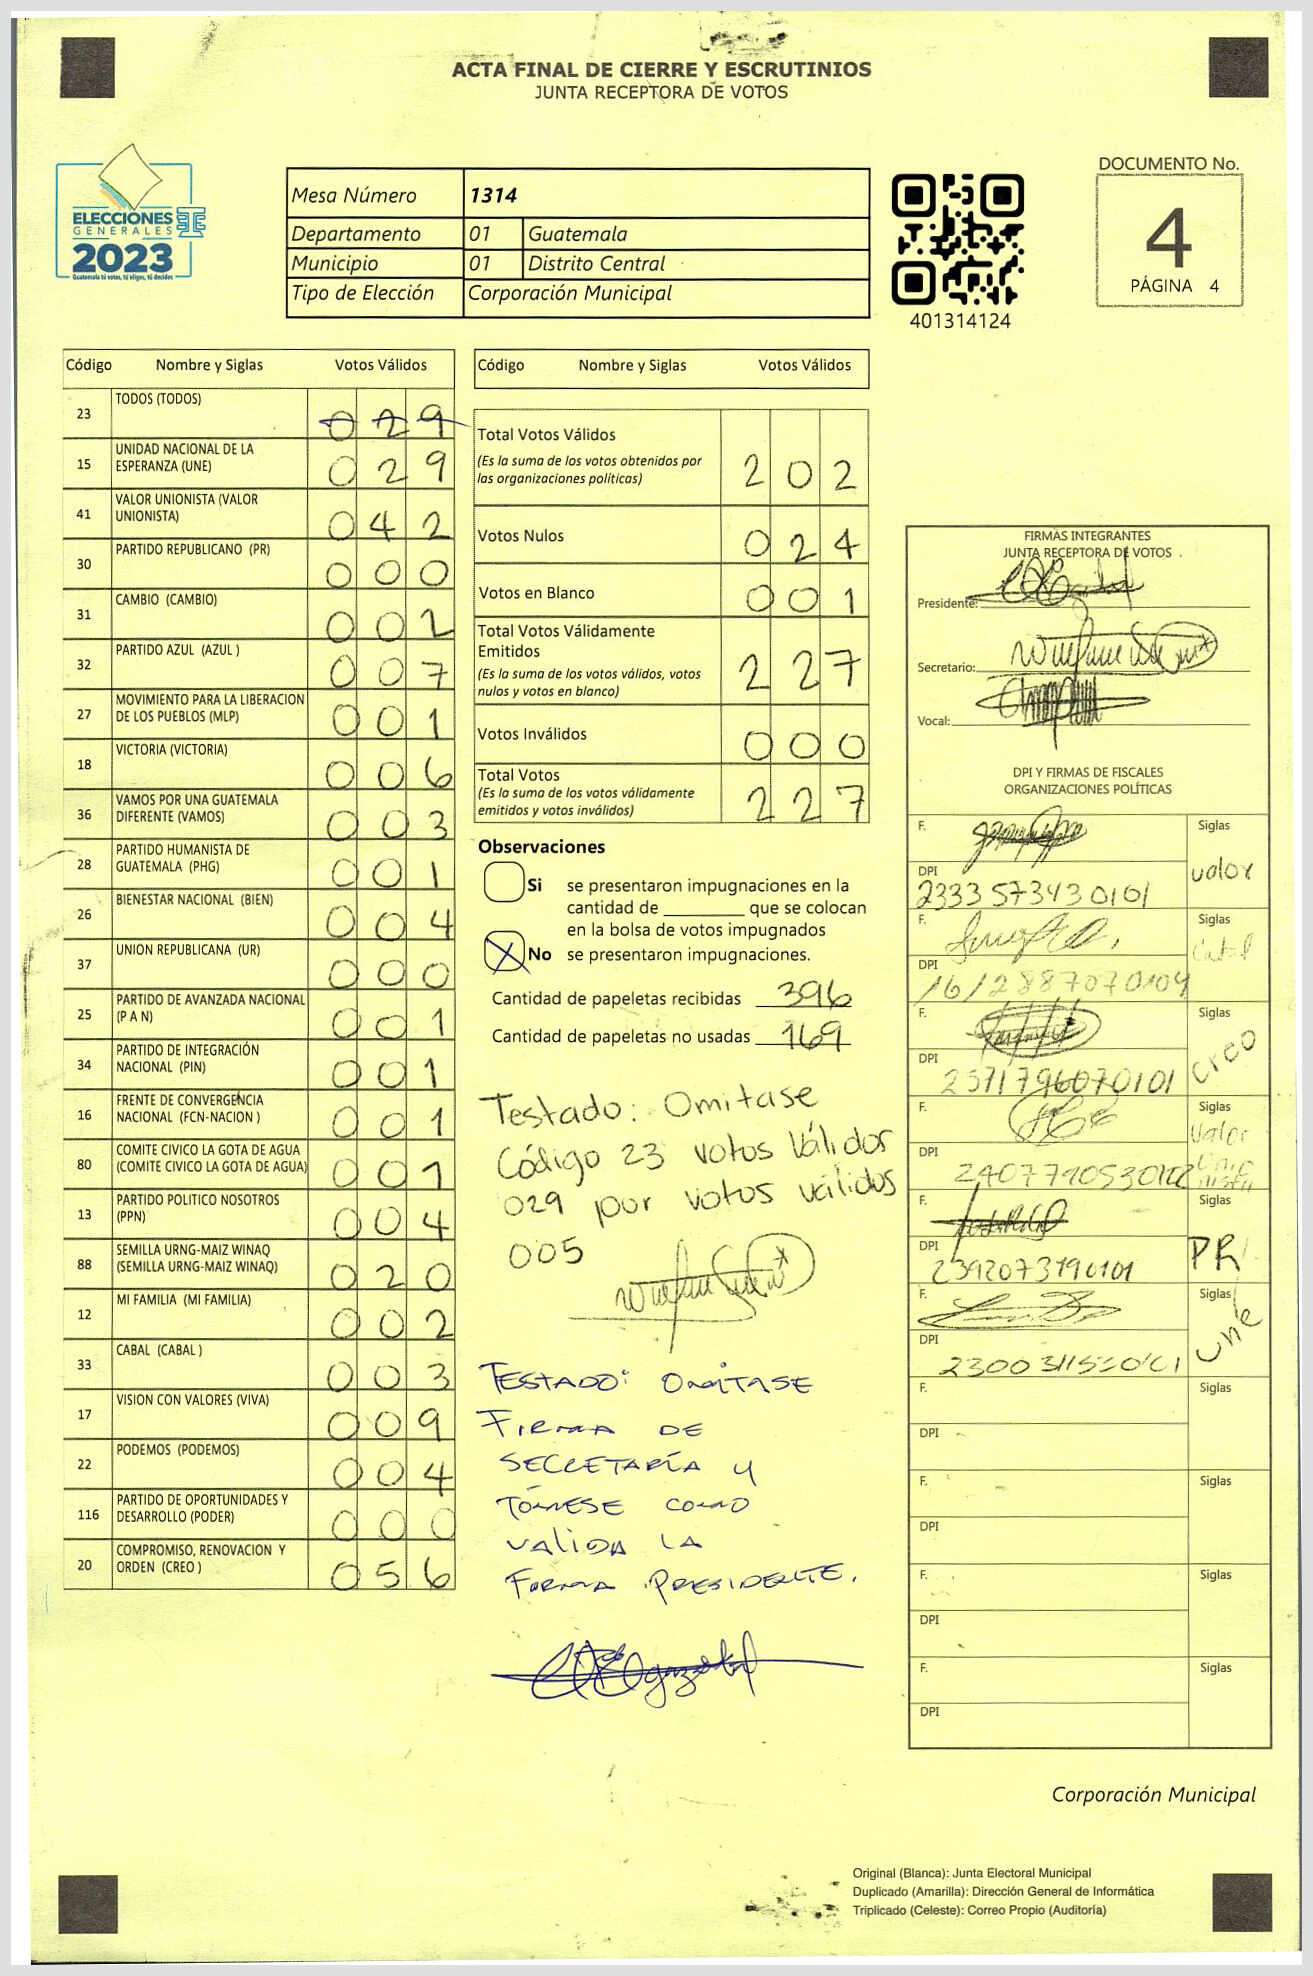 ACTA FINAL DE CIERRE Y ESCRUTINIOS
JUNTA RECEPTORA DE VOTOS
ELECCIONES
GENERALES
2023
Guatemala tú votas, tú eliges, tú decides
Mesa Número 1314
Departamento 01 Guatemala
Municipio 01 Distrito Central
Tipo de Elección Corporación Municipal
401314124
DOCUMENTO No.
4
PÁGINA 4
Código Nombre y Siglas Votos Válidos
23 TODOS (TODOS) 029
15 UNIDAD NACIONAL DE LA ESPERANZA (UNE) 029
41 VALOR UNIONISTA (VALOR UNIONISTA) 042
30 PARTIDO REPUBLICANO (PR) 000
31 CAMBIO (CAMBIO) 002
32 PARTIDO AZUL (AZUL ) 007
27 MOVIMIENTO PARA LA LIBERACION DE LOS PUEBLOS (MLP) 001
18 VICTORIA (VICTORIA) 006
36 VAMOS POR UNA GUATEMALA DIFERENTE (VAMOS) 003
28 PARTIDO HUMANISTA DE GUATEMALA (PHG) 001
26 BIENESTAR NACIONAL (BIEN) 004
37 UNION REPUBLICANA (UR) 000
25 PARTIDO DE AVANZADA NACIONAL (P A N) 001
34 PARTIDO DE INTEGRACIÓN NACIONAL (PIN) 001
16 FRENTE DE CONVERGENCIA NACIONAL (FCN-NACION ) 001
80 COMITE CIVICO LA GOTA DE AGUA (COMITE CIVICO LA GOTA DE AGUA) 001
13 PARTIDO POLITICO NOSOTROS (PPN) 004
88 SEMILLA URNG-MAIZ WINAQ (SEMILLA URNG-MAIZ WINAQ) 020
12 MI FAMILIA (MI FAMILIA) 002
33 CABAL (CABAL ) 003
17 VISION CON VALORES (VIVA) 009
22 PODEMOS (PODEMOS) 004
116 PARTIDO DE OPORTUNIDADES Y DESARROLLO (PODER) 000
20 COMPROMISO, RENOVACION Y ORDEN (CREO ) 056
Código Nombre y Siglas Votos Válidos
Total Votos Válidos 202
(Es la suma de los votos obtenidos por
las organizaciones políticas)
Votos Nulos 024
Votos en Blanco 001
Total Votos Válidamente
Emitidos 227
(Es la suma de los votos válidos, votos
nulos y votos en blanco)
Votos Inválidos 000
Total Votos 227
(Es la suma de los votos válidamente
emitidos y votos inválidos)
Observaciones
Si se presentaron impugnaciones en la
cantidad de ________ que se colocan
en la bolsa de votos impugnados
X No se presentaron impugnaciones.
Cantidad de papeletas recibidas 396
Cantidad de papeletas no usadas 169
Testado: Omitase
Código 23 votos Válidos
029 por votos válidos
005
TESTADO: OMITASE
FIRMA DE
SECRETARÍA Y
TÓMESE COMO
VALIDA LA
FIRMA PRESIDENTE.
FIRMAS INTEGRANTES
JUNTA RECEPTORA DE VOTOS
Presidente:
Secretario:
Vocal:
DPI Y FIRMAS DE FISCALES
ORGANIZACIONES POLÍTICAS
F. Siglas
valor
DPI
2333573430101
F. Siglas
Cabal
DPI
1612887070104
F. Siglas
Creo
DPI
2571796070101
F. Siglas
Valor
Unio
nista
DPI
F. Siglas
PR
DPI
2392073190101
F. Siglas
une
DPI
F. Siglas
DPI
F. Siglas
DPI
F. Siglas
DPI
F. Siglas
DPI
Corporación Municipal
Original (Blanca): Junta Electoral Municipal
Duplicado (Amarilla): Dirección General de Informática
Triplicado (Celeste): Correo Propio (Auditoría)